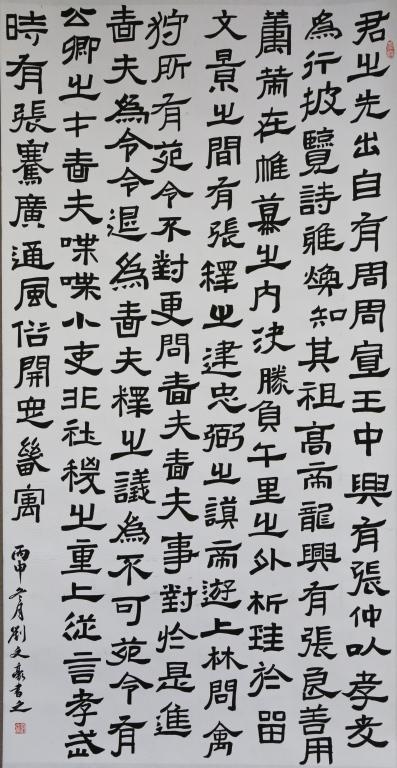 君之先出自有周周宣王中興有張仲以孝友
為行披覽詩雅煥知其祖高帝龍興有張良善用
籌策在帷幕之內決勝負千里之外析珪於留
文景之間有張釋之建忠弼之謨帝遊上林問禽
狩所有苑令不對更問嗇夫嗇夫事對於是進
嗇夫為令令退為嗇夫釋之議為不可苑令有
公卿之才嗇夫喋喋小吏非社稷之重上從言孝武
時有張騫廣通風俗開定畿寓
丙申冬月劉文豪書之